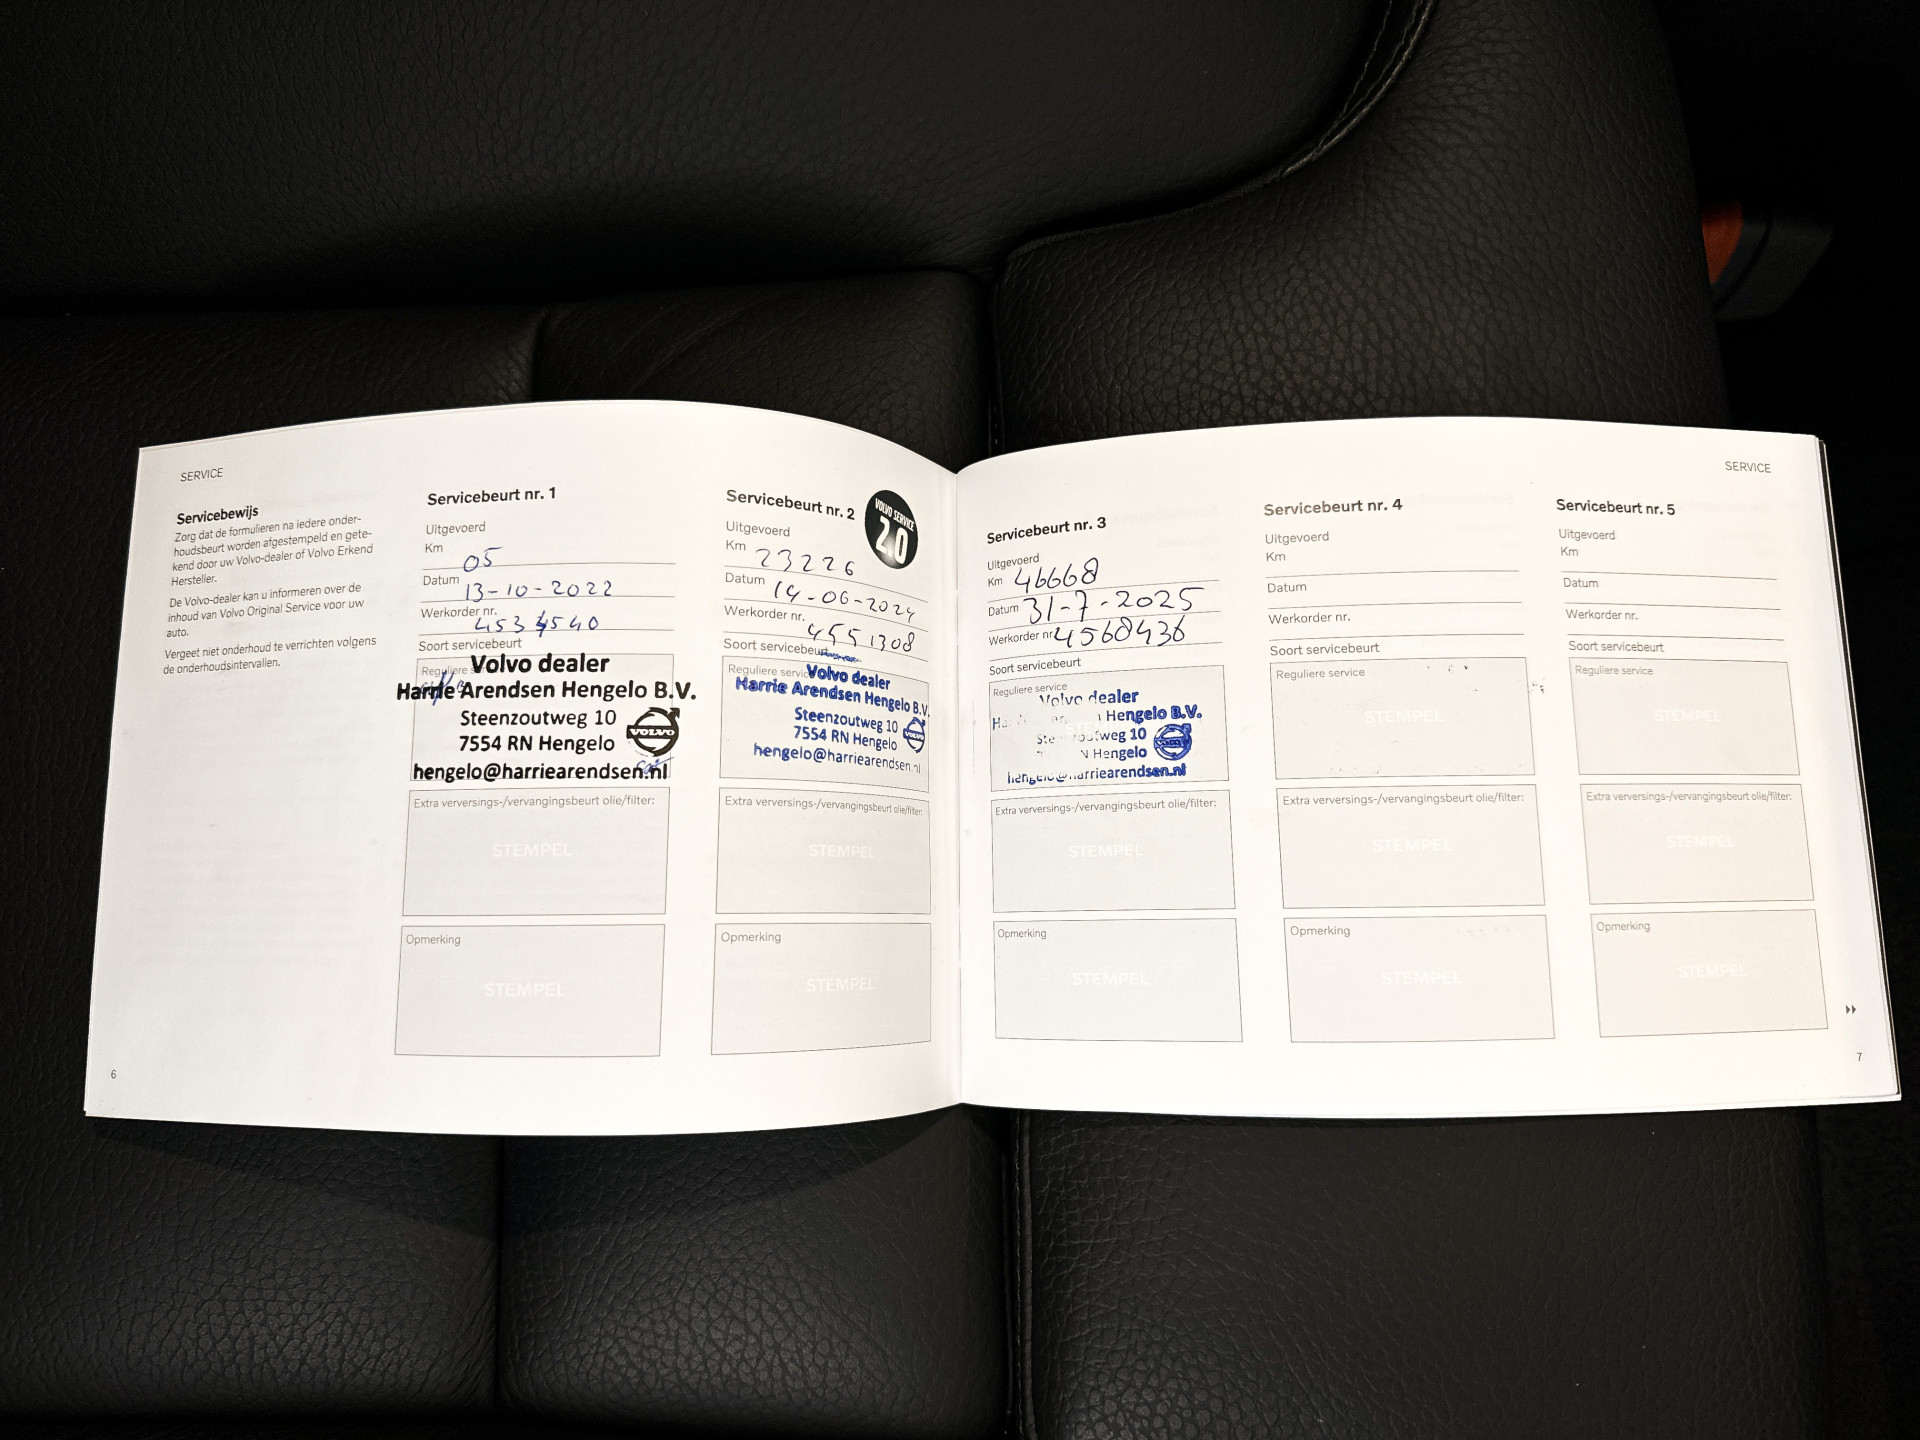 SERVICE
Servicebewijs
Zorg dat de formulieren na iedere onder-
houdsbeurt worden afgestempeld en gete-
kend door uw Volvo-dealer of Volvo Erkend
Hersteller.
De Volvo-dealer kan u informeren over de
inhoud van Volvo Original Service voor uw
auto.
Vergeet niet onderhoud te verrichten volgens
de onderhoudsintervallen.
6
Servicebeurt nr. 1
Uitgevoerd
Km 05
Datum 13-10-2022
Werkorder nr.
Soort servicebeurt
Reguliere
Volvo dealer
Harrie Arendsen Hengelo B.V.
Steenzoutweg 10
7554 RN Hengelo
VOLVO
hengelo@harriearendsen.nl
Extra verversings-/vervangingsbeurt olie/filter:
STEMPEL
Opmerking
STEMPEL
Servicebeurt nr. 2
VOLVO SERVICE
2.0
Uitgevoerd
Km 23226
Datum 14-06-2024
Werkorder nr. 4551308
Soort servicebeurt
Reguliere servic
Volvo dealer
Harrie Arendsen Hengelo B.V.
Steenzoutweg 10
7554 RN Hengelo
VOLVO
hengelo@harriearendsen.nl
Extra verversings-/vervangingsbeurt olie/filter:
STEMPEL
Opmerking
STEMPEL
Servicebeurt nr. 3
Uitgevoerd
Km 46668
Datum 31-7-2025
Werkorder nr 4568436
Soort servicebeurt
Reguliere service
Volvo dealer
Hengelo B.V.
weg 10
N Hengelo
VOLVO
arriearendsen.nl
Extra verversings-/vervangingsbeurt olie/filter:
STEMPEL
Opmerking
STEMPEL
Servicebeurt nr. 4
Uitgevoerd
Km
Datum
Werkorder nr.
Soort servicebeurt
Reguliere service
STEMPEL
Extra verversings-/vervangingsbeurt olie/filter:
STEMPEL
Opmerking
STEMPEL
SERVICE
Servicebeurt nr. 5
Uitgevoerd
Km
Datum
Werkorder nr.
Soort servicebeurt
Reguliere service
STEMPEL
Extra verversings-/vervangingsbeurt olie/filter:
STEMPEL
Opmerking
STEMPEL
7